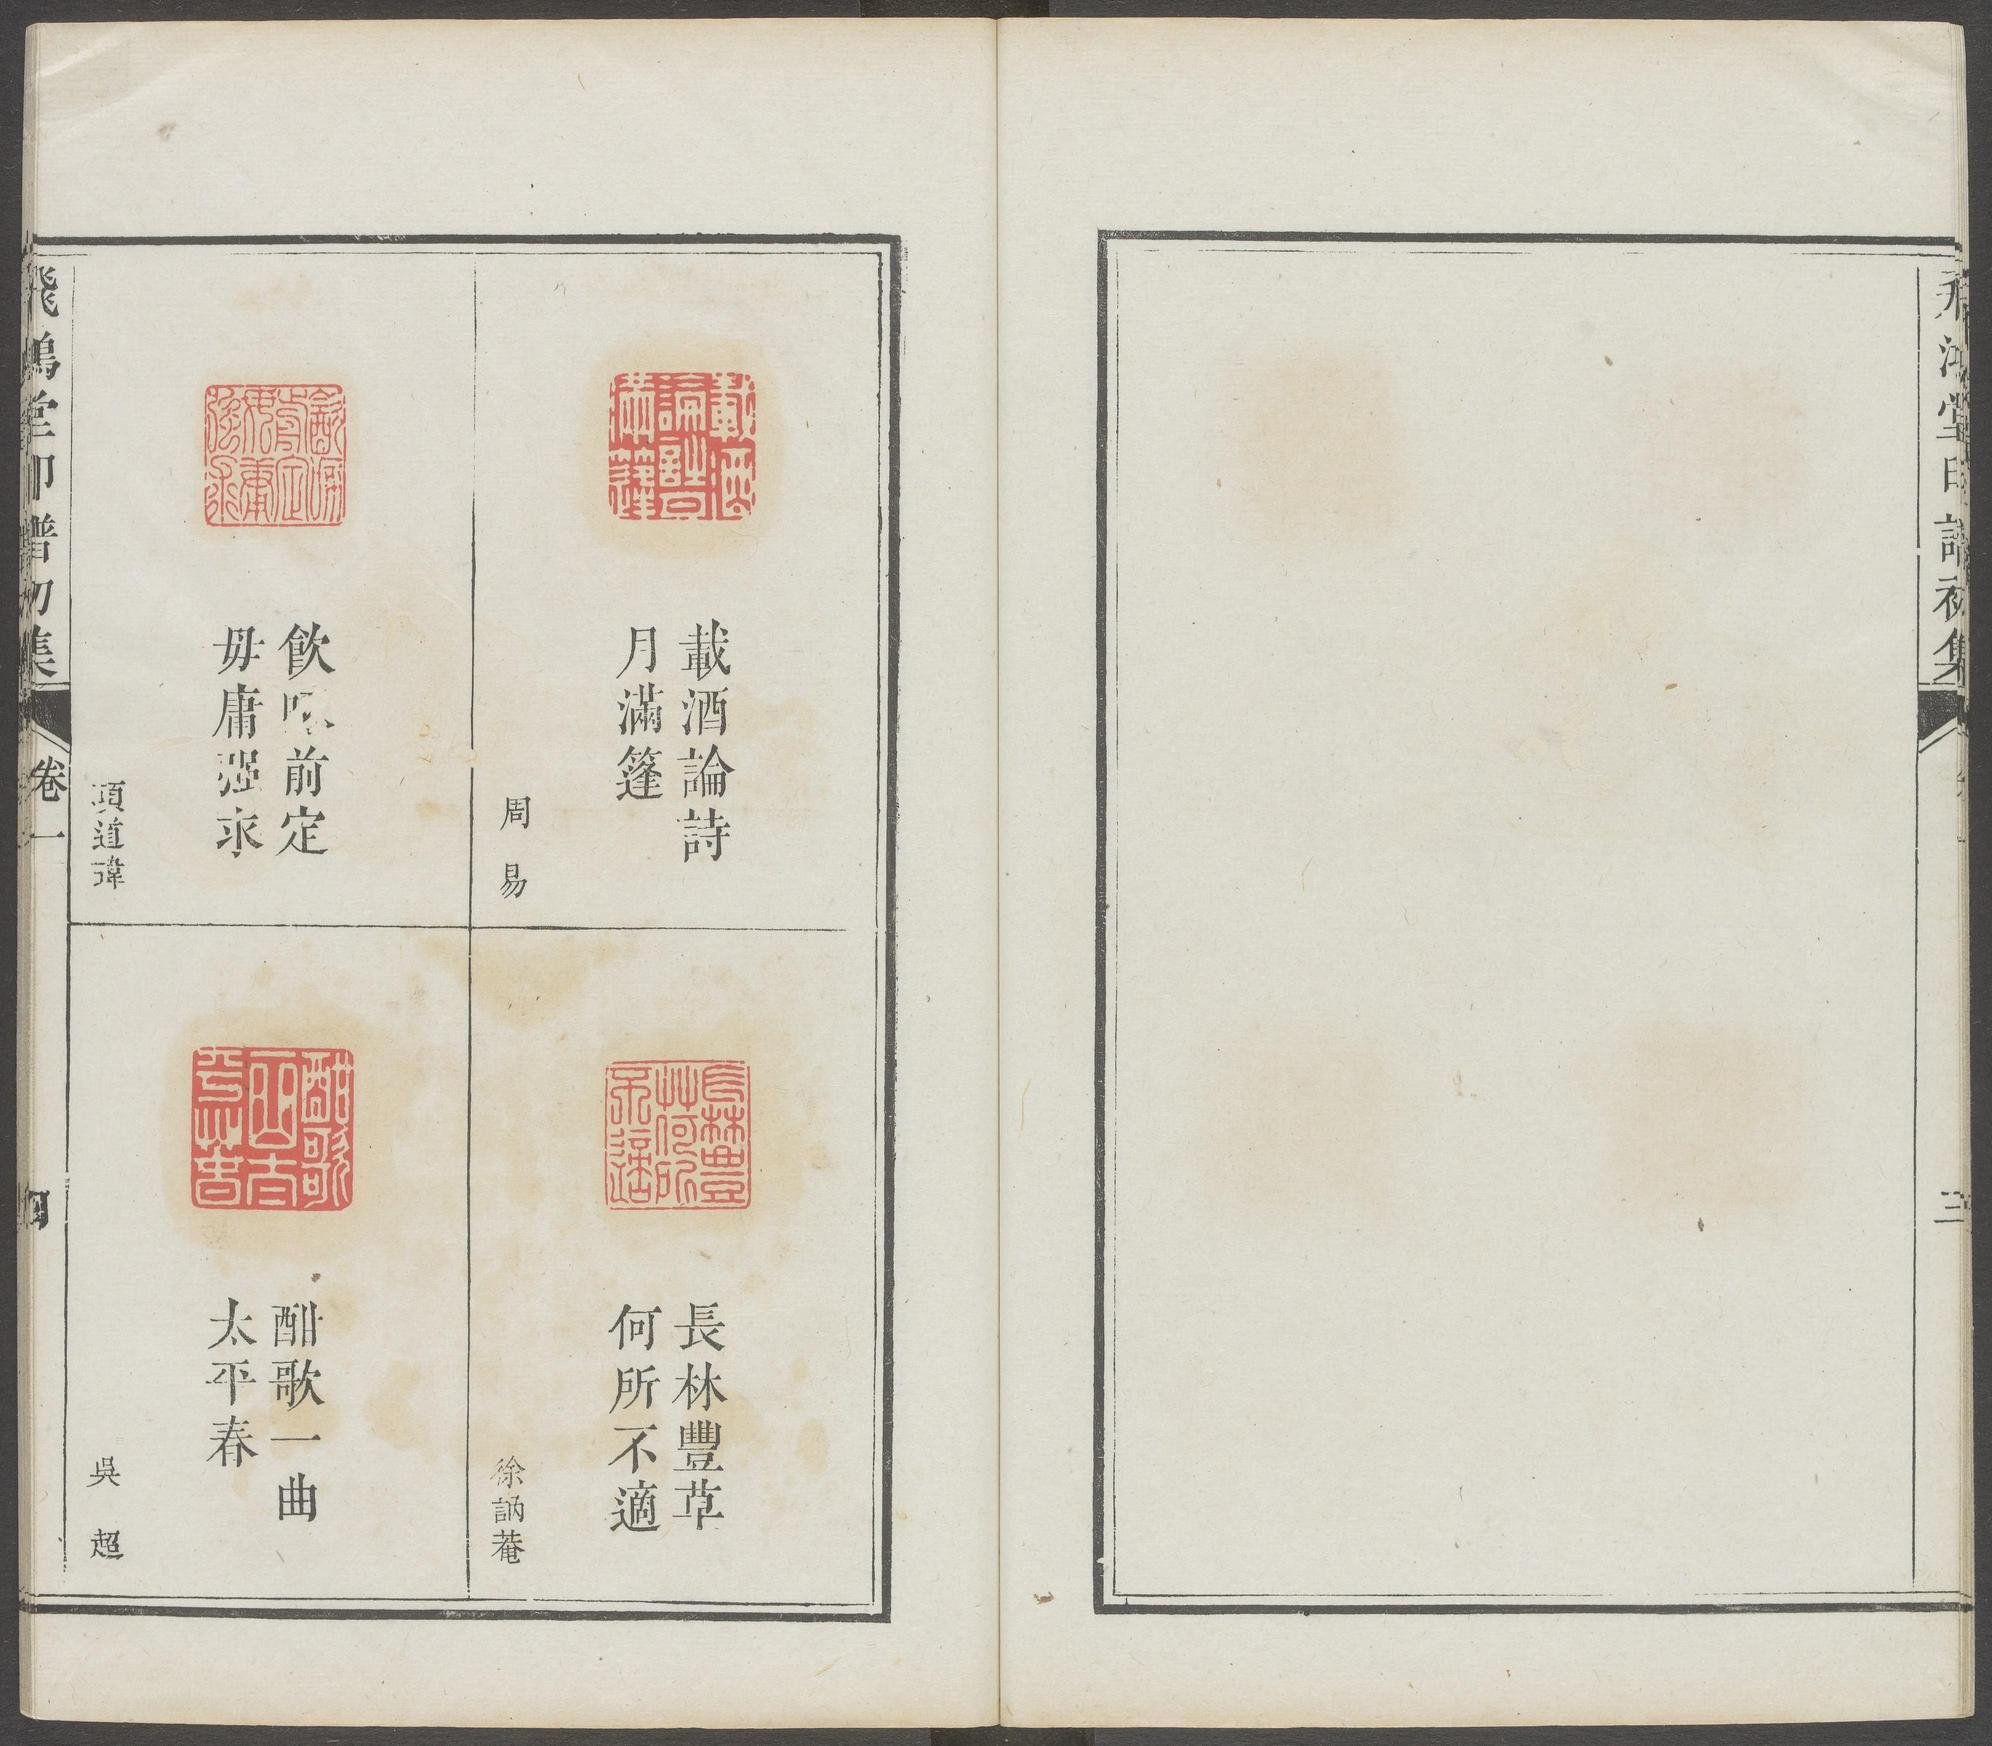 飛鴻堂印譜初集
三
載酒論詩
月滿篷
周易
飲啄前定
毋庸强求
項道瑋
長林豐草
何所不適
徐訥菴
酣歌一曲
太平春
吳超
飛鴻堂印譜初集
卷一
四